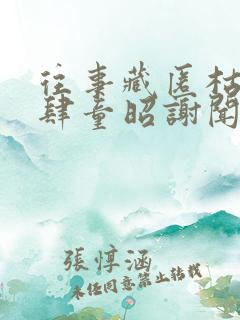 往事藏匿枯
肆童昭謝聞
張惇涵
未经同意禁止转载